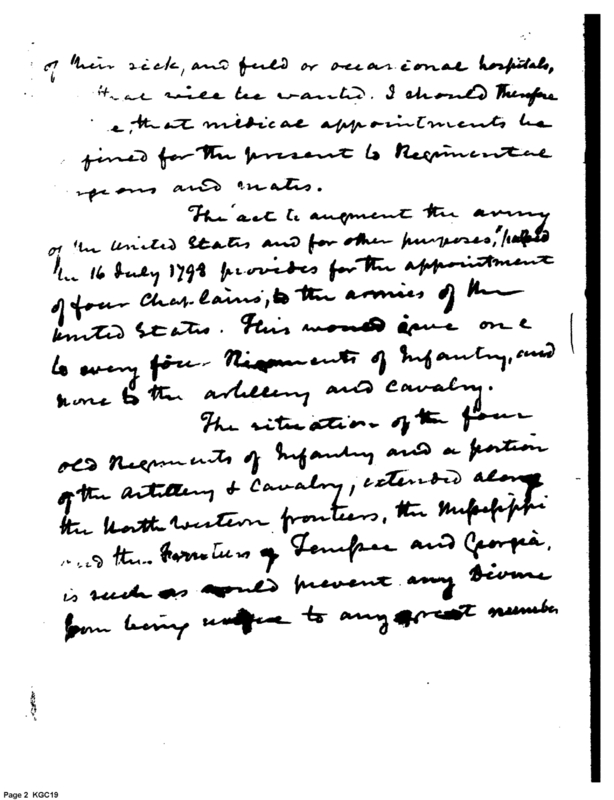 of their sick, and field or occasional hospitals,
that will be wanted. I should therefore
e, that medical appointments be
fined for the present to Regimental
geons and mates.
The act to augment the army
of the United States and for other purposes," passed
the 16 July 1798 provides for the appointment
of four Chaplains, to the armies of the
United States. This would give one
to every four Regiments of Infantry, and
none to the artillery and cavalry.
The situation of the four
old Regiments of Infantry and a portion
of the artillery & Cavalry, extended along
the North Western frontiers, the Mississippi
and the frontiers of Tennessee and Georgia,
is such as would prevent any Divine
from being of use to any great number
Page 2 KGC19